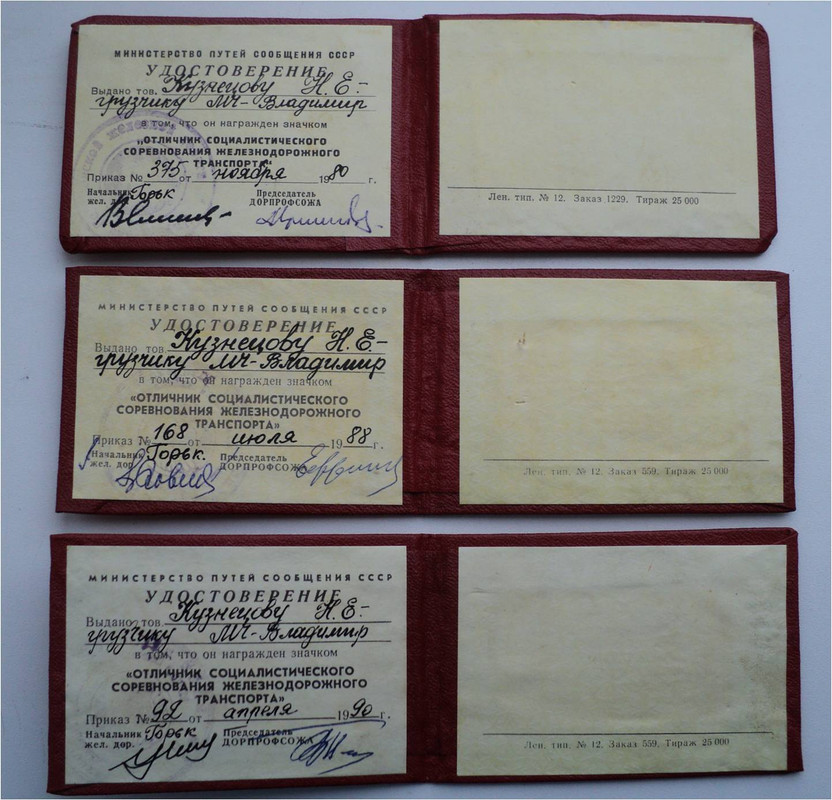 МИНИСТЕРСТВО ПУТЕЙ СООБЩЕНИЯ СССР
УДОСТОВЕРЕНИЕ
Выдано тов. Кузнецову Н. Е.-
грузчику МЧ-Владимир
в том, что он награжден значком
„ОТЛИЧНИК СОЦИАЛИСТИЧЕСКОГО
СОРЕВНОВАНИЯ ЖЕЛЕЗНОДОРОЖНОГО
ТРАНСПОРТА“
Приказ № 375 от ноября 1980 г.
Начальник Горьк Председатель
жел. дор. ДОРПРОФСОЖА
Лен. тип. № 12. Заказ 1229. Тираж 25 000
МИНИСТЕРСТВО ПУТЕЙ СООБЩЕНИЯ СССР
УДОСТОВЕРЕНИЕ
Выдано тов. Кузнецову Н. Е.-
грузчику МЧ-Владимир
в том, что он награжден значком
«ОТЛИЧНИК СОЦИАЛИСТИЧЕСКОГО
СОРЕВНОВАНИЯ ЖЕЛЕЗНОДОРОЖНОГО
ТРАНСПОРТА»
Приказ № 168 от июля 1988 г.
Начальник Горьк. Председатель
жел. дор. ДОРПРОФСОЖА
Лен. тип. № 12. Заказ 559. Тираж 25 000
МИНИСТЕРСТВО ПУТЕЙ СООБЩЕНИЯ СССР
УДОСТОВЕРЕНИЕ
Выдано тов. Кузнецову Н. Е-
грузчику МЧ-Владимир
в том, что он награжден значком
«ОТЛИЧНИК СОЦИАЛИСТИЧЕСКОГО
СОРЕВНОВАНИЯ ЖЕЛЕЗНОДОРОЖНОГО
ТРАНСПОРТА»
Приказ № 92 от апреля 1990 г.
Начальник Горьк Председатель
жел. дор. ДОРПРОФСОЖА
Лен. тип. № 12. Заказ 559. Тираж 25 000